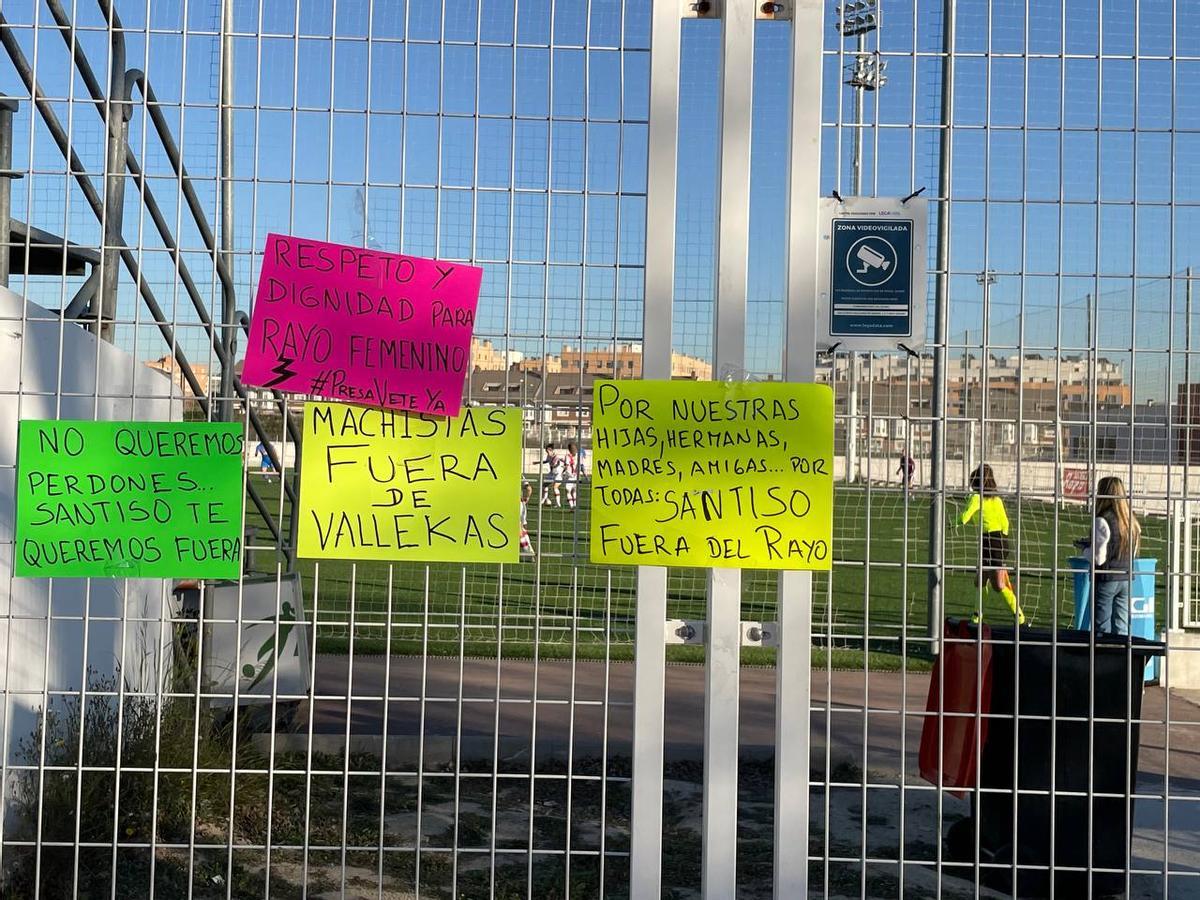 RESPETO Y
DIGNIDAD PARA
RAYO FEMENINO
#PRESAVETEYA
NO QUEREMOS
PERDONES...
SANTISO TE
QUEREMOS FUERA
MACHISTAS
FUERA
DE
VALLEKAS
POR NUESTRAS
HIJAS, HERMANAS,
MADRES, AMIGAS... POR
TODAS: SANTISO
FUERA DEL RAYO
ZONA VIDEOVIGILADA